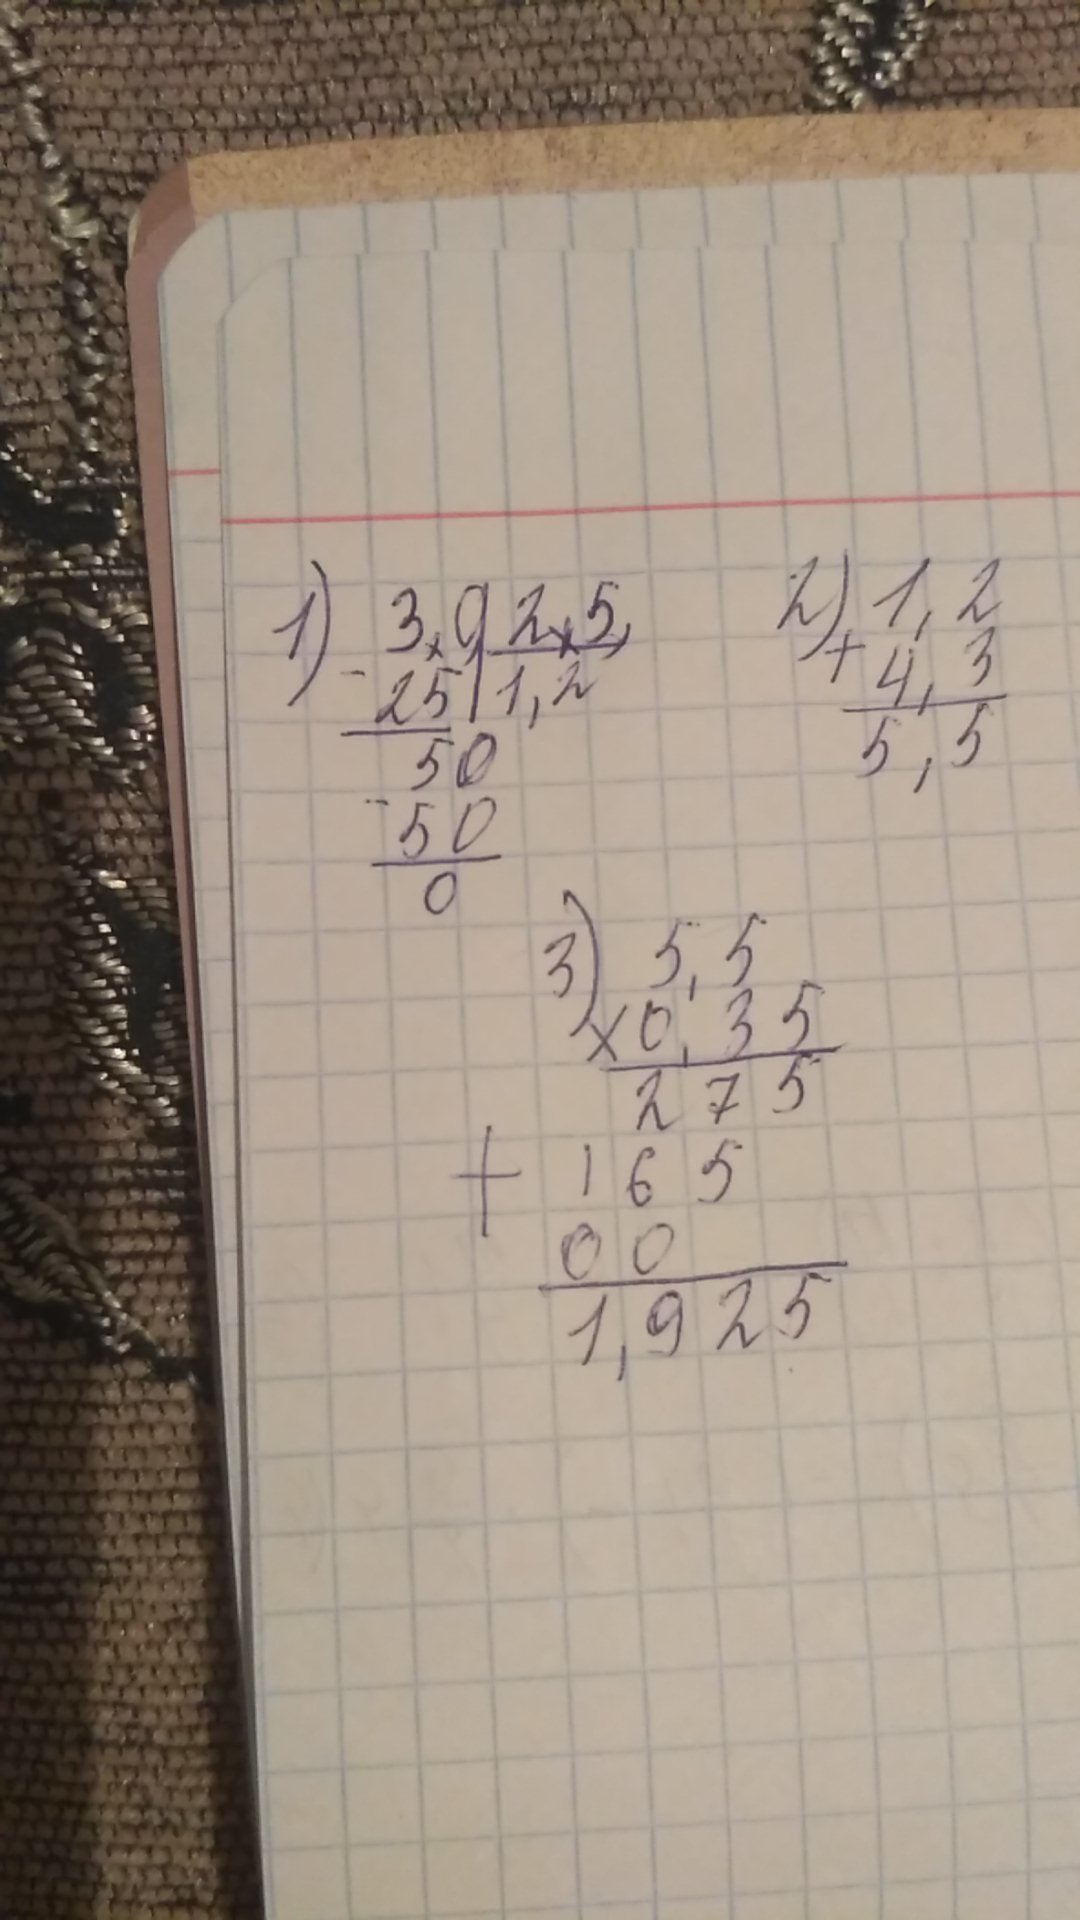 1) 3,0 2,5,
- 25 1,2
50
- 50
0
2) 1,2
+ 4,3
5,5
3) 5,5
× 0,35
275
+ 165
00
1,925